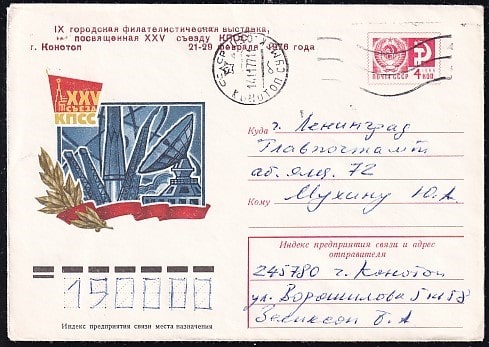 IX городская филателистическая выставка,
посвященная XXV съезду КПСС
г. Конотоп 21-29 февраля 1976 года
СССР
КОНОТОП
ПОЧТА СССР 4 КОП
XXV
СЪЕЗД
КПСС
Куда г. Ленинград
Главпочтамт
аб. ящ. 72
Кому Мухину Ю.А.
Индекс предприятия связи и адрес
отправителя
245780 г. Конотоп
ул. Ворошилова
Б. А
190000
Индекс предприятия связи места назначения